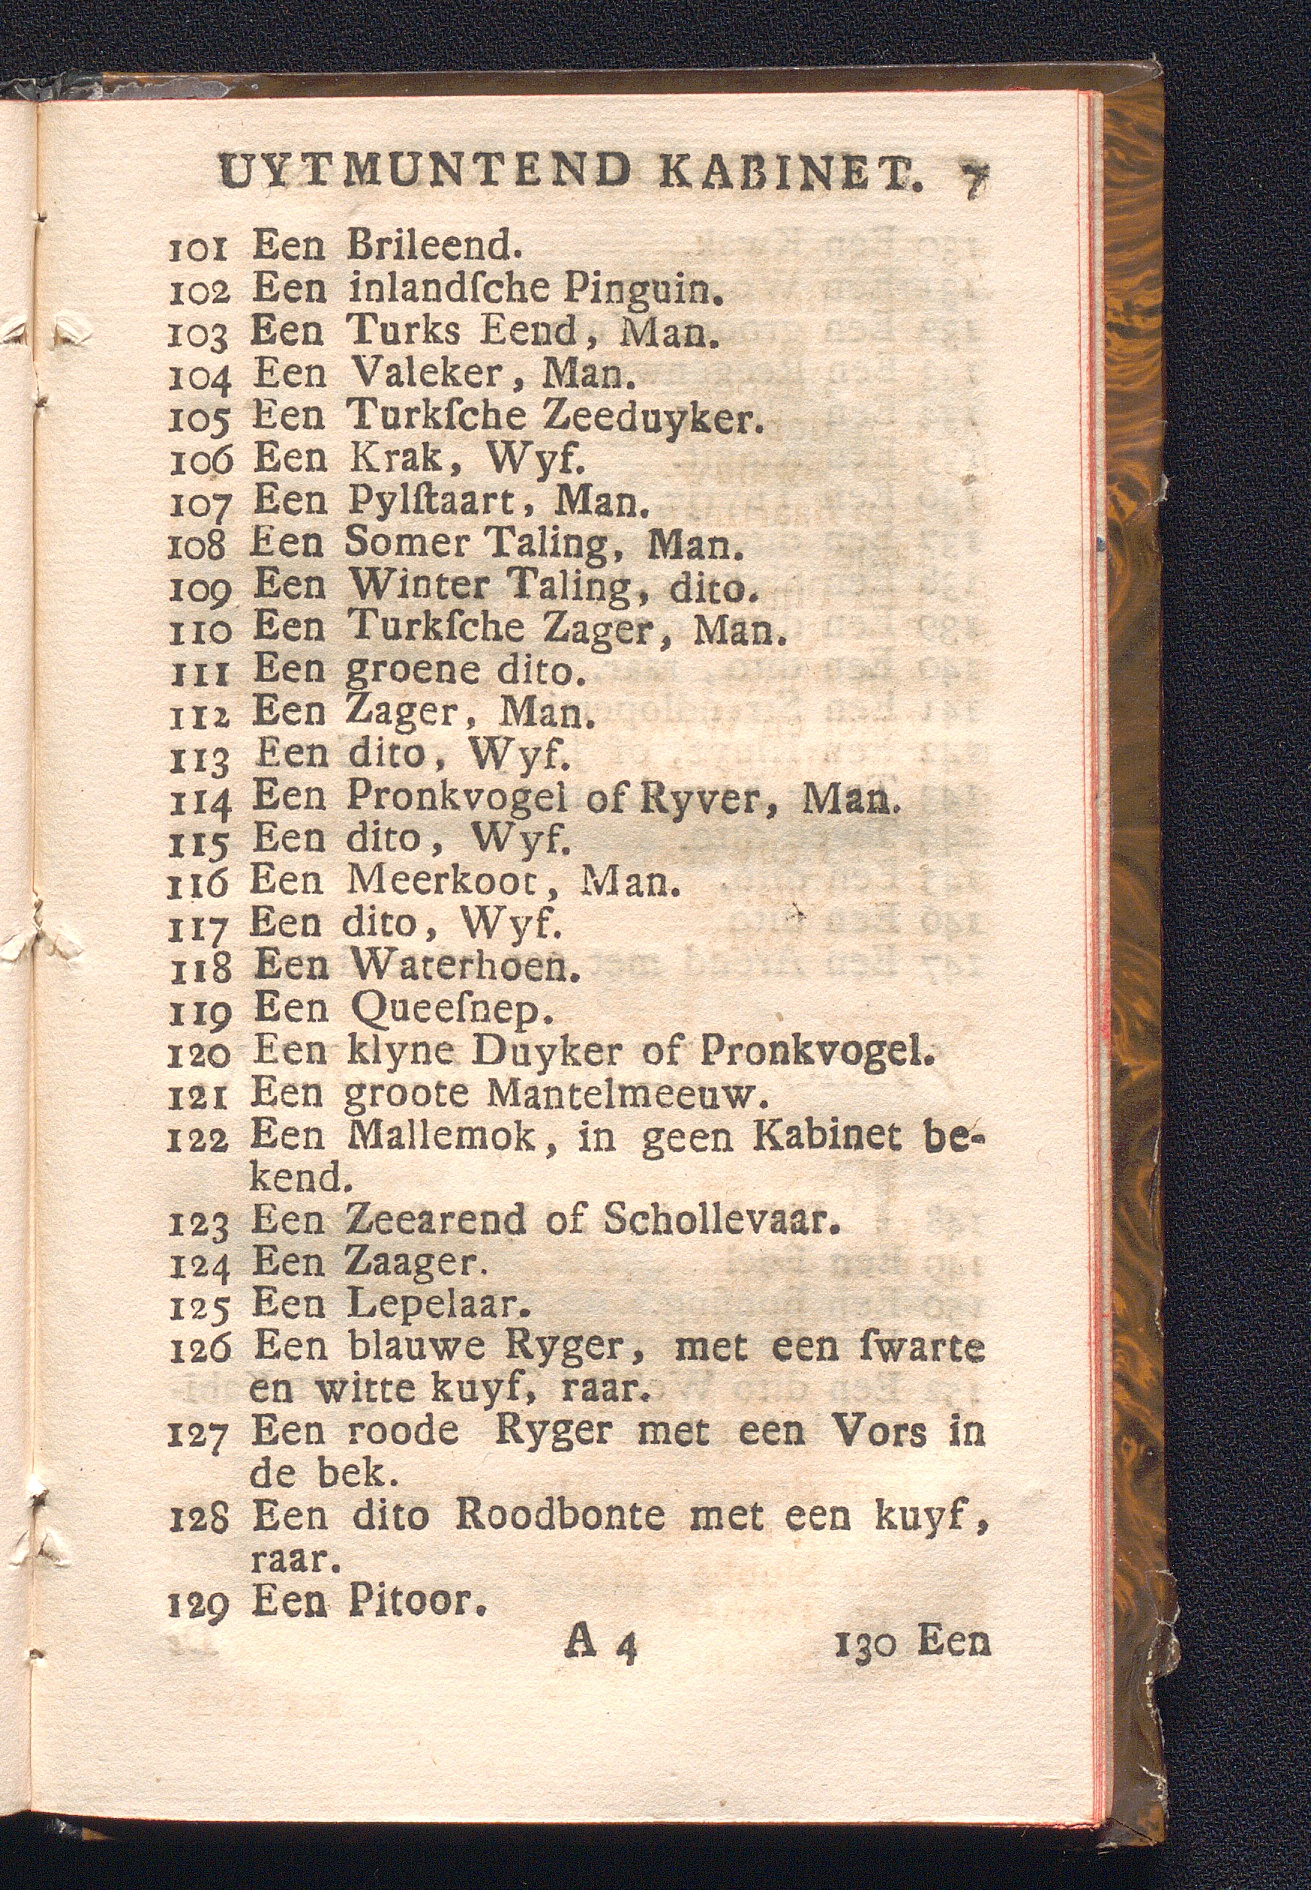 UYTMUNTEND KABINET. 7
101 Een Brileend.
102 Een inlandſche Pinguin.
103 Een Turks Eend, Man.
104 Een Valeker, Man.
105 Een Turkſche Zeeduyker.
106 Een Krak, Wyf.
107 Een Pylſtaart, Man.
108 Een Somer Taling, Man.
109 Een Winter Taling, dito.
110 Een Turkſche Zager, Man.
111 Een groene dito.
112 Een Zager, Man.
113 Een dito, Wyf.
114 Een Pronkvogel of Ryver, Man.
115 Een dito, Wyf.
116 Een Meerkoot, Man.
117 Een dito, Wyf.
118 Een Waterhoen.
119 Een Queeſnep.
120 Een klyne Duyker of Pronkvogel.
121 Een groote Mantelmeeuw.
122 Een Mallemok, in geen Kabinet be-
kend.
123 Een Zeearend of Schollevaar.
124 Een Zaager.
125 Een Lepelaar.
126 Een blauwe Ryger, met een ſwarte
en witte kuyf, raar.
127 Een roode Ryger met een Vors in
de bek.
128 Een dito Roodbonte met een kuyf,
raar.
129 Een Pitoor.
A 4 130 Een